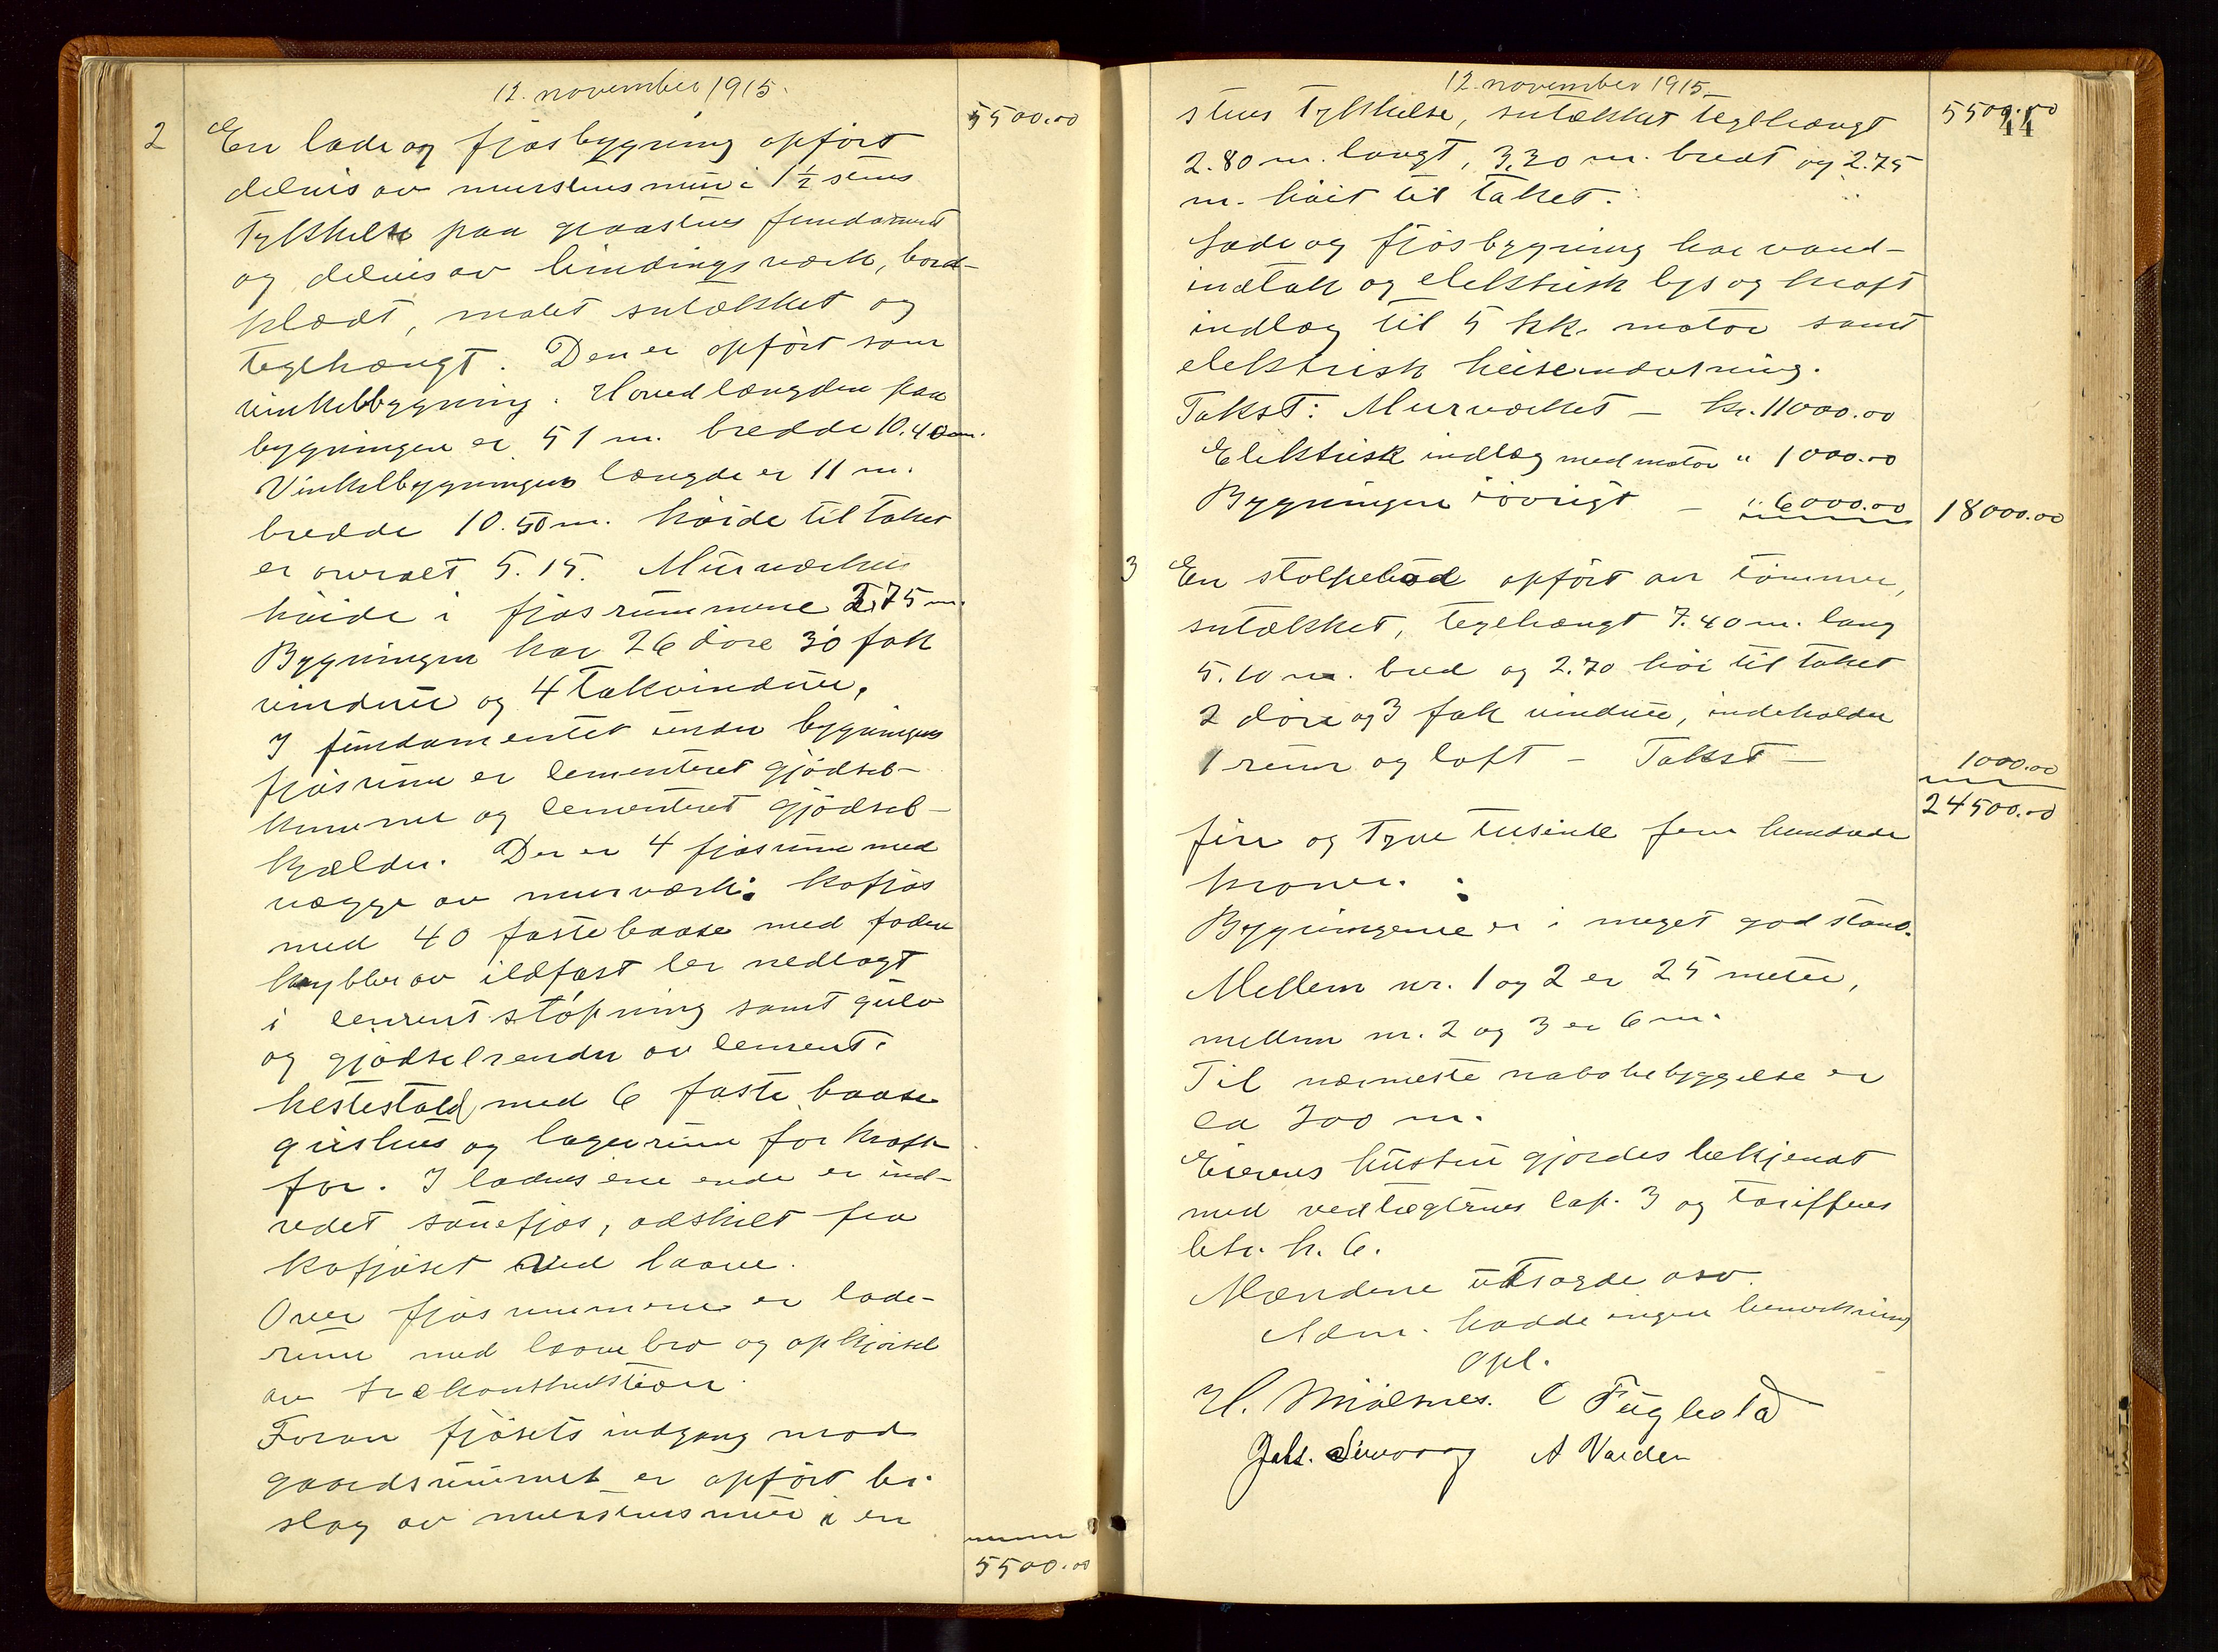 12. november 1915.
5500.00
2 En lade og fjøsbygning opført
delvis av murstensmur i 1½ stens
tykkelse paa graastens fundament
og delvis av bindingsverk, bord-
klædt, malet sutækket og
teglhængt. Den er opført som
vinkelbygning. Hovedlængden paa
bygningen er 51 m. bredde 10.40 m.
Vinkelbygningens længde er 11 m.
bredde 10.50 m. høide til taket
er overalt 5.15. Murverkets
høide i fjøsrummene 2.75 m.
Bygningen har 26 døre 30 fak
vinduer og 4 takvinduer.
I fundamentet under bygningens
fjøsrum er cementeret gjødsel-
kummer og cementeret gjødsel-
kjælder. Der er 4 fjøsrum med
vægge av murverk: kofjøs
med 40 faste baase med foder
krybber av ildfast ler nedlagt
i cementstøpning samt gulv
og gjødselrender av cement.
hestestald med 6 faste baase
grishus og lagerrum for kraft
for. I ladens ene ende er ind-
redet sauefjøs, adskilt fra
kofjøset ved laave.
Over fjøsrummene er lade-
rum med laavebro og opkjørsel
av trækonstruktion.
Foran fjøsets indgang mod
gaardsrummet er opført bi-
slag av murstensmur i en
5500.00
12. november 1915.
44
stens tykkelse, sutækket teglhængt
5500.00
2.80 m. langt, 3.30 m. bredt og 2.75
m. høit til taket.
Lade og fjøsbygning har vand-
indtak og elektrisk lys og kraft
indlæg til 5 hk. motor samt
elektrisk heiseindretning.
Takst: Murverket – kr. 11000.00
Elektrisk indlæg med motor " 1000.00
Bygningen iøvrigt – " 6000.00 18000.00
3 En stolpebod opført av tømmer,
sutækket, teglhængt 7.40 m. lang
5.10 m. bred og 2.70 høi til taket
2 døre og 3 fak vinduer, indeholder
1 rum og loft – Takst – 1000.00
24500.00
fire og tyve tusinde fem hundrede
kroner.
Bygningene er i meget god stand.
Mellem nr. 1 og 2 er 25 meter,
mellem nr. 2 og 3 er 6 m.
Til nærmeste nabobebyggelse er
ca 300 m.
Eierens hustru gjordes bekjendt
med vedtægternes cap. 3 og tariffens
litr. h. 6.
Mændene utsagde osv.
Adm. hadde ingen bemerkning
Opl.
H. Mjølsnes. C Fuglestad
Johs. A Varden